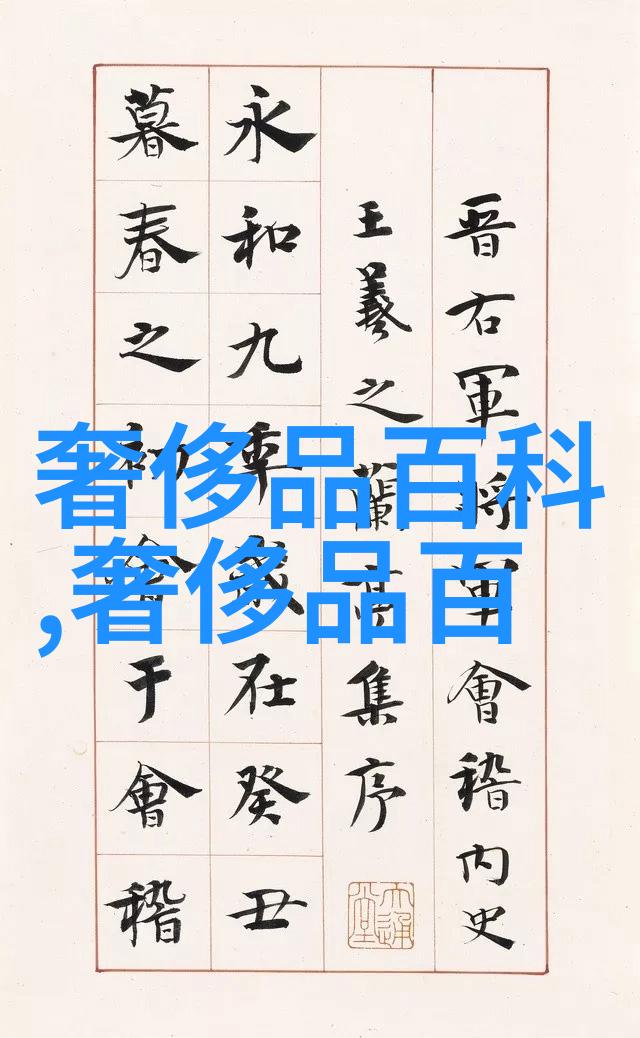 晋右軍将軍會稽内史
王羲之蘭亭集序
永和九年歲在癸丑
暮春之初會于會稽
奢侈品百科
,奢侈品百